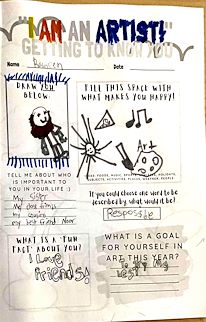 "I AM AN ARTIST!"
GETTING TO KNOW YOU
Name
Date
DRAW YOU
BELOW.
FILL THIS SPACE WITH
WHAT MAKES YOU HAPPY!
Art
TELL ME ABOUT WHO
IS IMPORTANT TO
YOU IN YOUR LIFE :)
My Sister
my cousins
my best friend Noor
IDEAS: FOODS, MUSIC, PEOPLE, HOLIDAYS,
SUBJECTS, ACTIVITIES, PLACES, WEATHER, PEOPLE
If you could choose one word to be
described by, what would it be?
WHAT IS A "FUN
FACT" ABOUT YOU?
I Love
friends!
WHAT IS A GOAL
FOR YOURSELF IN
ART THIS YEAR?
best